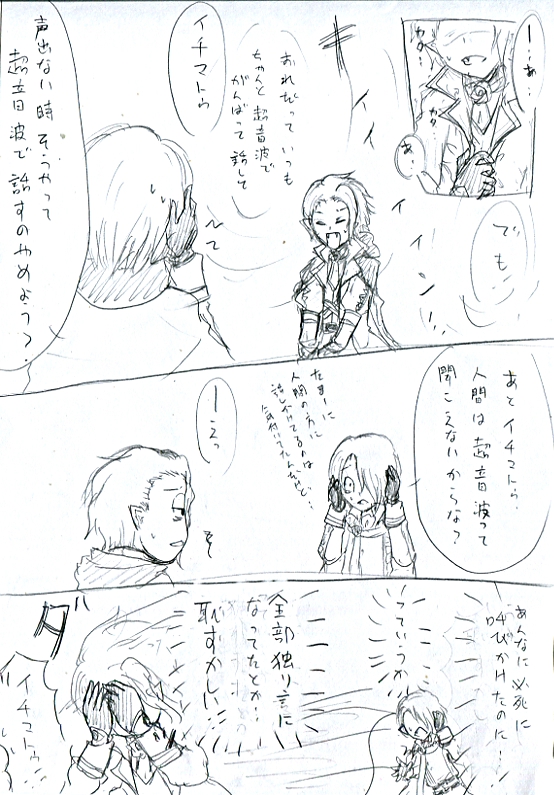 ーぁ…
カ…
カ
あ…
でも…
イイイイン…!!
キ
おれだっていつも
ちゃんと超音波で
がんばって話して
イチマトゥ
声出ない時そうやって
超音波で話すのやめよう?
あとイチマトゥ、
人間は超音波って
聞こえないからな?
たまーに
人間の方に
話しかけてるのは
気付いてたんだけど…
ーえっ
あんなに必死に
呼びかけたのに…
っていうか
全部独り言に
なってたとか…
恥ずかしい…
ダ"
イチマトゥ